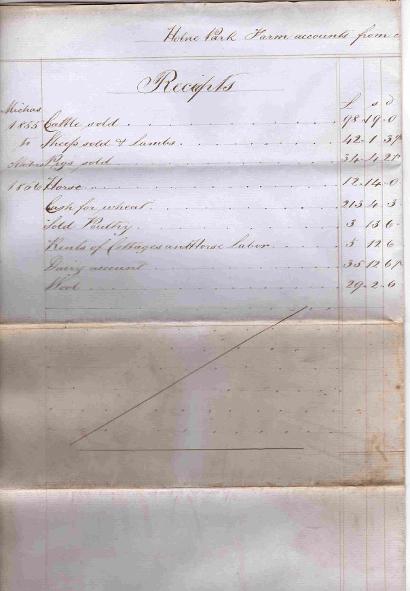 Holne Park Farm accounts from
Receipts
£ s d
Michas
1855 Cattle sold 98-19-0
to Sheep sold & Lambs 42-1-3½
Pigs sold 34-4-2½
1856 Horse 12-14-0
Cash for wheat 213 4-3
Sold Poultry 3 13 6
Rents of Cottages and Horse labor 5 12 6
Dairy account 35-12 6½
Wool 29-2-6